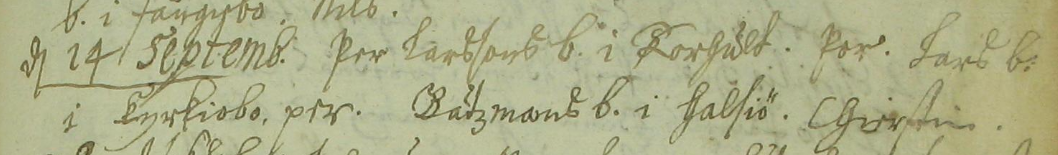 b. i Långsbo. Nils.
d 14 Septemb. Per Larssons b. i Korhult. Por. Lars b:
i Kyrkiobo. per. Båtzmans b. i Halsiö. Chierstin.